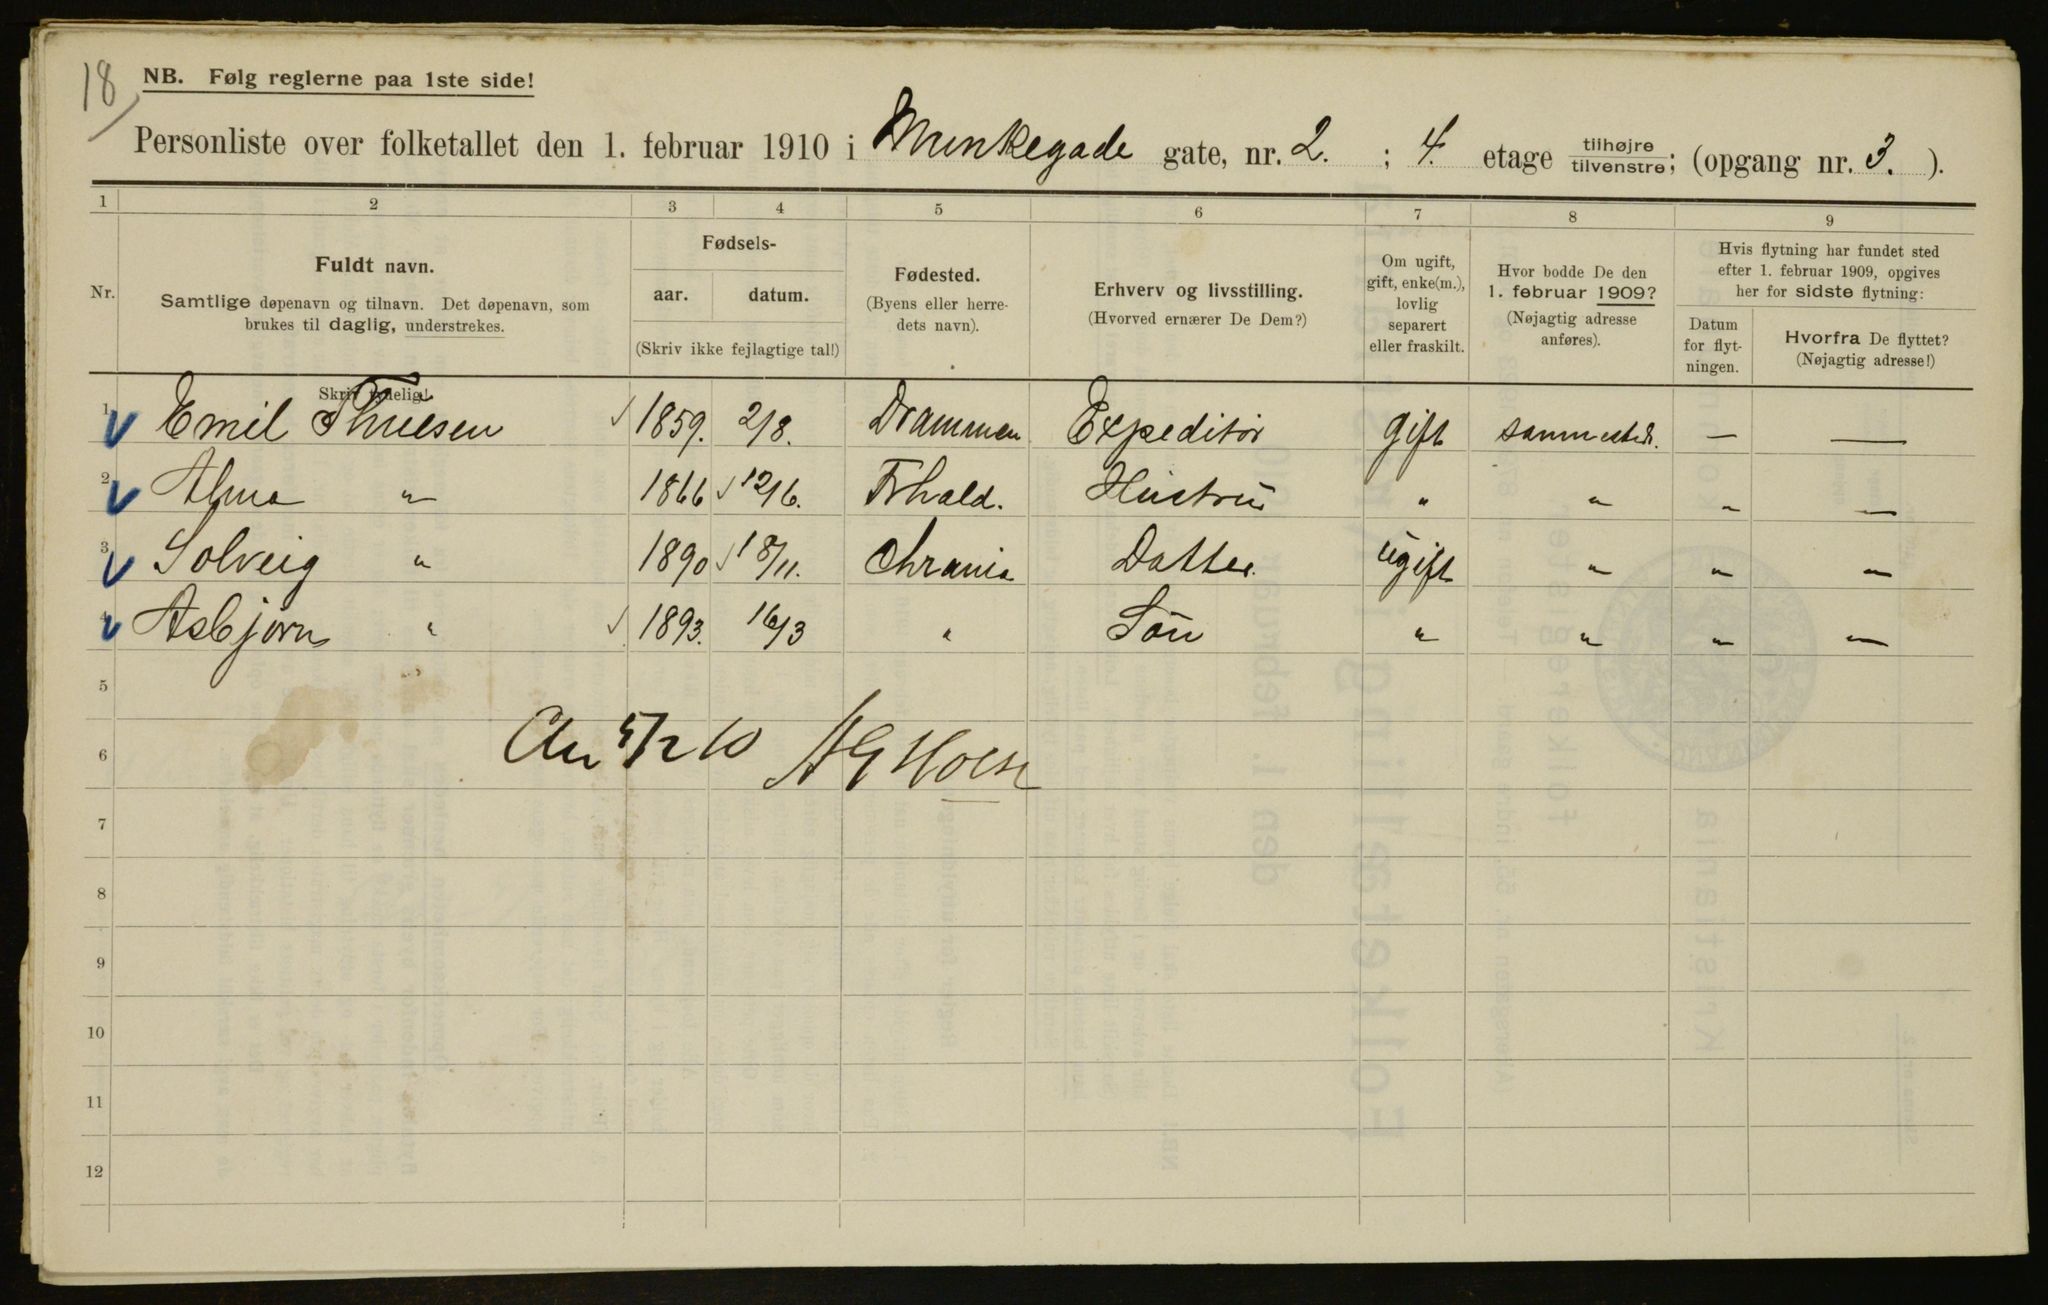 18
NB. Følg reglerne paa 1ste side!
Personliste over folketallet den 1. februar 1910 i Munkegade gate, nr. 2. ; 4. etage tilhøjre tilvenstre; (opgang nr. 3. ).
1 2 3 4 5 6 7 8 9
Nr.
Fuldt navn.
Samtlige døpenavn og tilnavn. Det døpenavn, som
brukes til daglig, understrekes.
Skriv tydelig!
Fødsels-
aar. datum.
(Skriv ikke fejlagtige tal!)
Fødested.
(Byens eller herre-
dets navn).
Erhverv og livsstilling.
(Hvorved ernærer De Dem?)
Om ugift,
gift, enke(m.),
lovlig
separert
eller fraskilt.
Hvor bodde De den
1. februar 1909?
(Nøjagtig adresse
anføres).
Hvis flytning har fundet sted
efter 1. februar 1909, opgives
her for sidste flytning:
Datum
for flyt-
ningen.
Hvorfra De flyttet?
(Nøjagtig adresse!)
1 Emil Thuesen 1859. 2/8. Drammen Expeditør gift sammested. — —
2 Alma " 1866 12/6. Frhald. Hustru " " " —
3 Solveig " 1890 18/11. Chrania Datter ugift " " "
4 Asbjørn " 1893. 16/3 " Søn " " " —
5
6 5/2 10 AG Holst
7
8
9
10
11
12